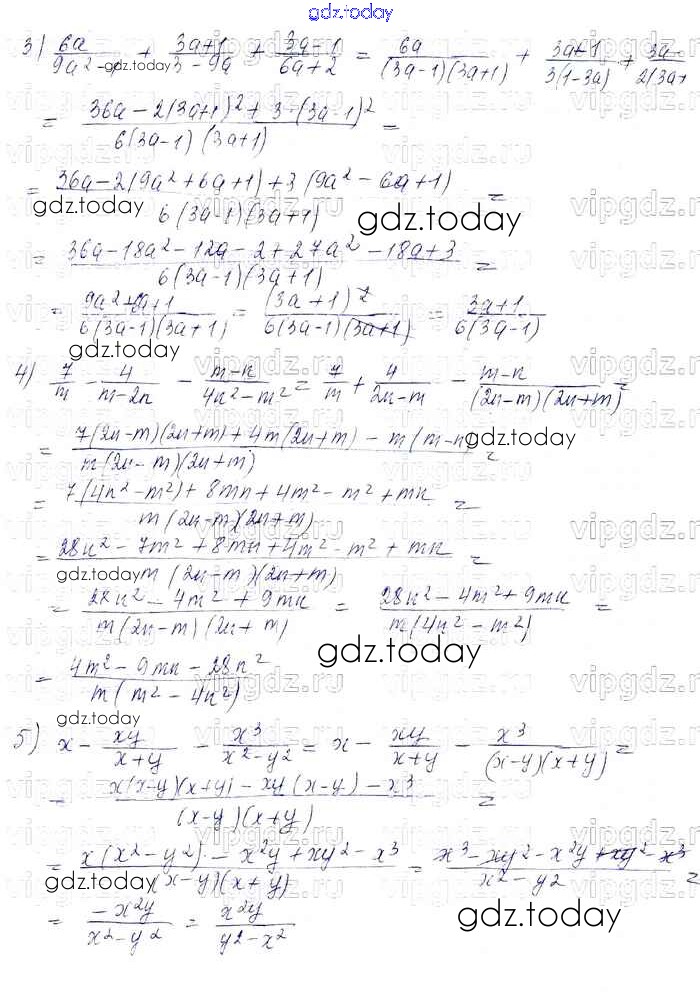 gdz.today
3) 6a/(9a² – + (3a+1)/(3-9a) + (3a-1)/(6a+2) = 6a/((3a-1)(3a+1)) + (3a+1)/(3(1-3a)) + 3a-/2(3a+
gdz.today
= (36a-2(3a+1)²+3·(3a-1)²)/(6(3a-1)(3a+1)) =
= (36a-2(9a²+6a+1)+3(9a²-6a+1))/(6(3a-1)(3a+1)) =
gdz.today gdz.today
= (36a-18a²-12a-2+27a²-18a+3)/(6(3a-1)(3a+1)) =
= (9a²+6a+1)/(6(3a-1)(3a+1)) = (3a+1)²/(6(3a-1)(3a+1)) = (3a+1)/(6(3a-1))
gdz.today
4) 7/m - 4/(m-2n) - (m-n)/(4n²-m²) = 7/m + 4/(2n-m) - (m-n)/((2n-m)(2n+m)) =
= (7(2n-m)(2n+m)+4m(2n+m)-m(m-n))/(m(2n-m)(2n+m)) =
gdz.today
= (7(4n²-m²)+8mn+4m²-m²+mn)/(m(2n-m)(2n+m)) =
= (28n²-7m²+8mn+4m²-m²+mn)/(m(2n-m)(2n+m)) =
gdz.today
= (28n²-4m²+9mn)/(m(2n-m)(2n+m)) = (28n²-4m²+9mn)/(m(4n²-m²)) =
gdz.today
= (4m²-9mn-28n²)/(m(m²-4n²))
gdz.today
5) x - xy/(x+y) - x³/(x²-y²) = x - xy/(x+y) - x³/((x-y)(x+y)) =
= (x(x-y)(x+y)-xy(x-y)-x³)/((x-y)(x+y)) =
= (x(x²-y²)-x²y+xy²-x³)/((x-y)(x+y)) = (x³-xy²-x²y+xy²-x³)/(x²-y²) =
gdz.today gdz.today
= -x²y/(x²-y²) = x²y/(y²-x²)
vipgdz.ru